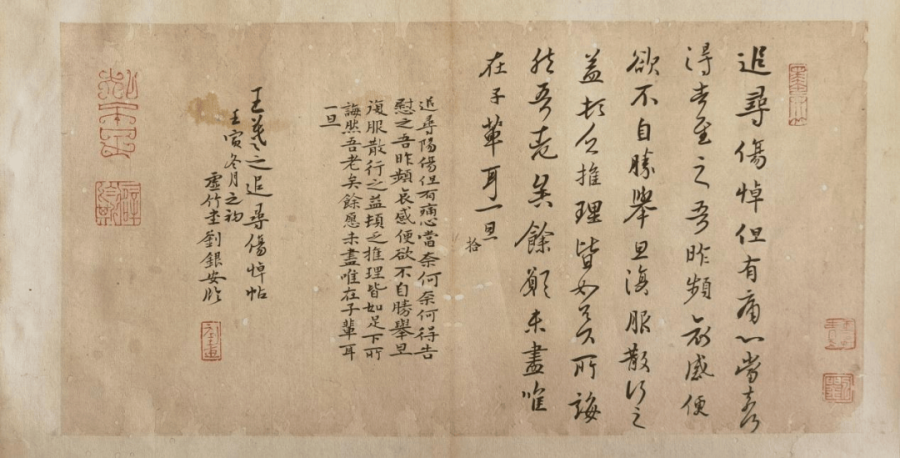 追尋傷悼但有痛心當奈何
得告慰之吾昨頻哀感便
欲不自勝舉旦復服散行之
益頓乏推理皆如足下所誨
然吾老矣餘願未盡唯
在子輩耳一旦
拾
追尋陽傷但有痛心當奈何奈何得告
慰之吾昨頻哀感便欲不自勝舉旦
復服散行之益頓乏推理皆如足下所
誨然吾老矣餘愿未盡唯在子輩耳
一旦
王羲之追尋傷悼帖
壬寅冬月之初
虛竹劉銀安臨